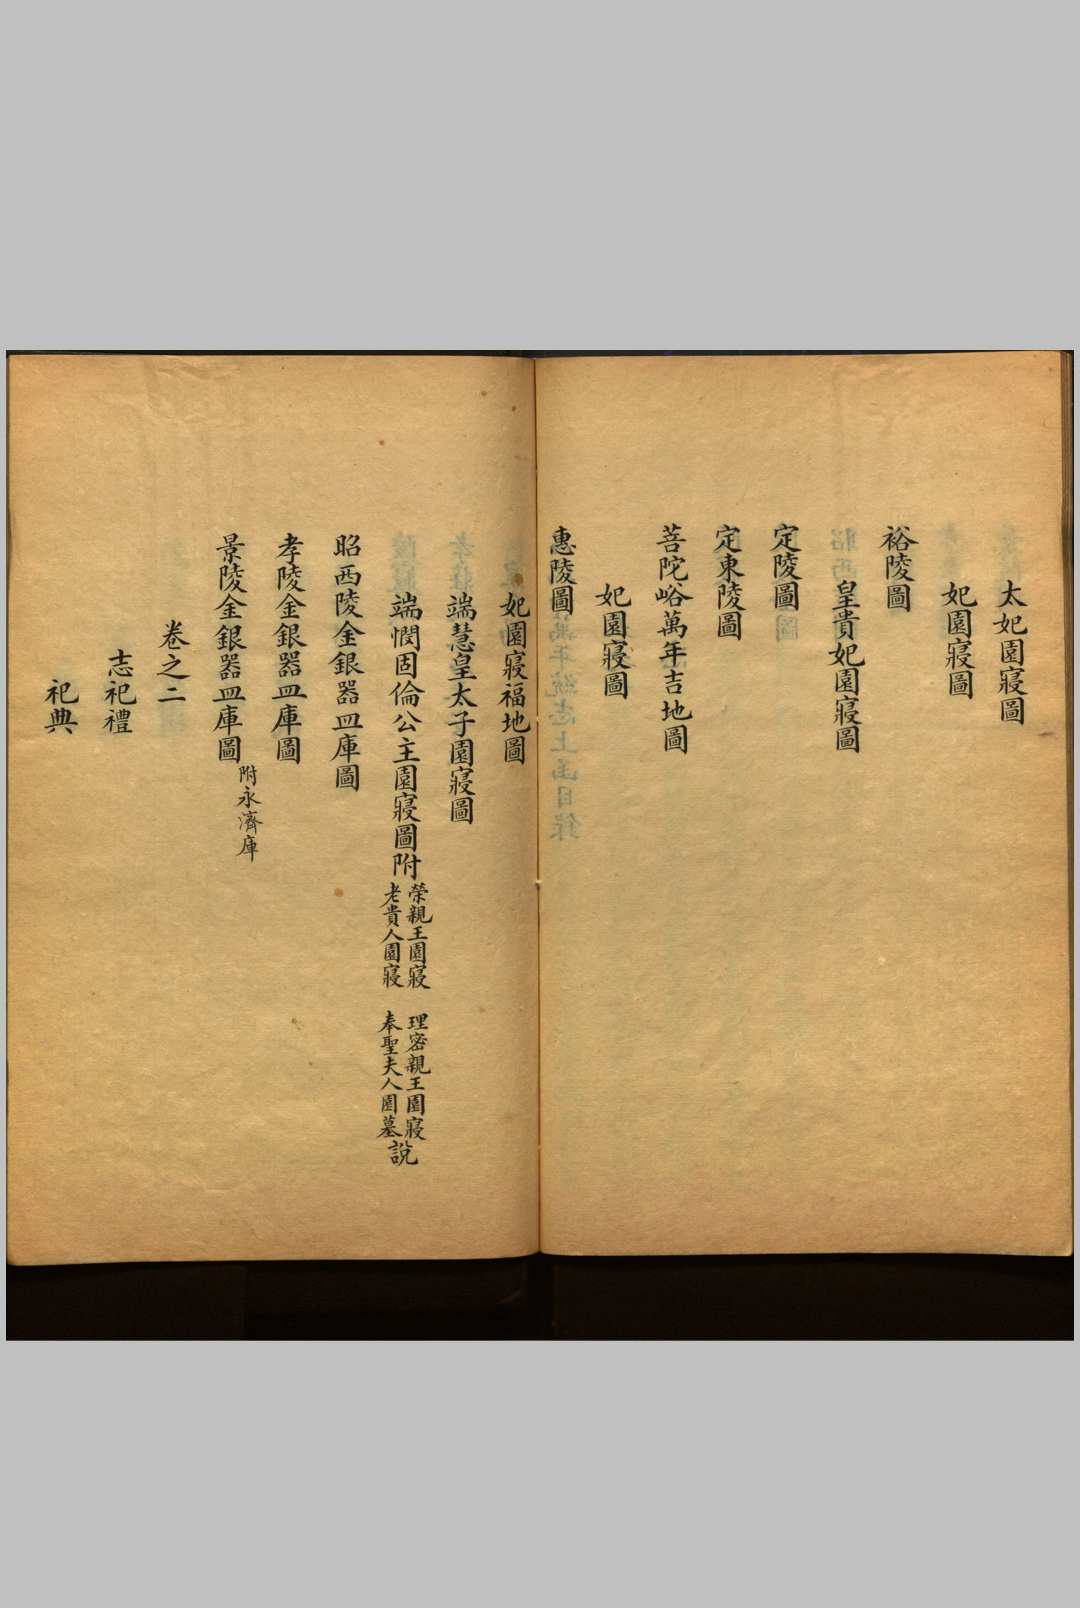 太妃園寢圖
妃園寢圖
裕陵圖
皇貴妃園寢圖
定陵圖
定東陵圖
菩陀峪萬年吉地圖
妃園寢圖
惠陵圖
妃園寢福地圖
端慧皇太子園寢圖
端憫固倫公主園寢圖附
榮親王園寢
老貴人園寢
理密親王園寢
奉聖夫人園墓
說
昭西陵金銀器皿庫圖
孝陵金銀器皿庫圖
景陵金銀器皿庫圖
附永濟庫
卷之二
志祀禮
祀典